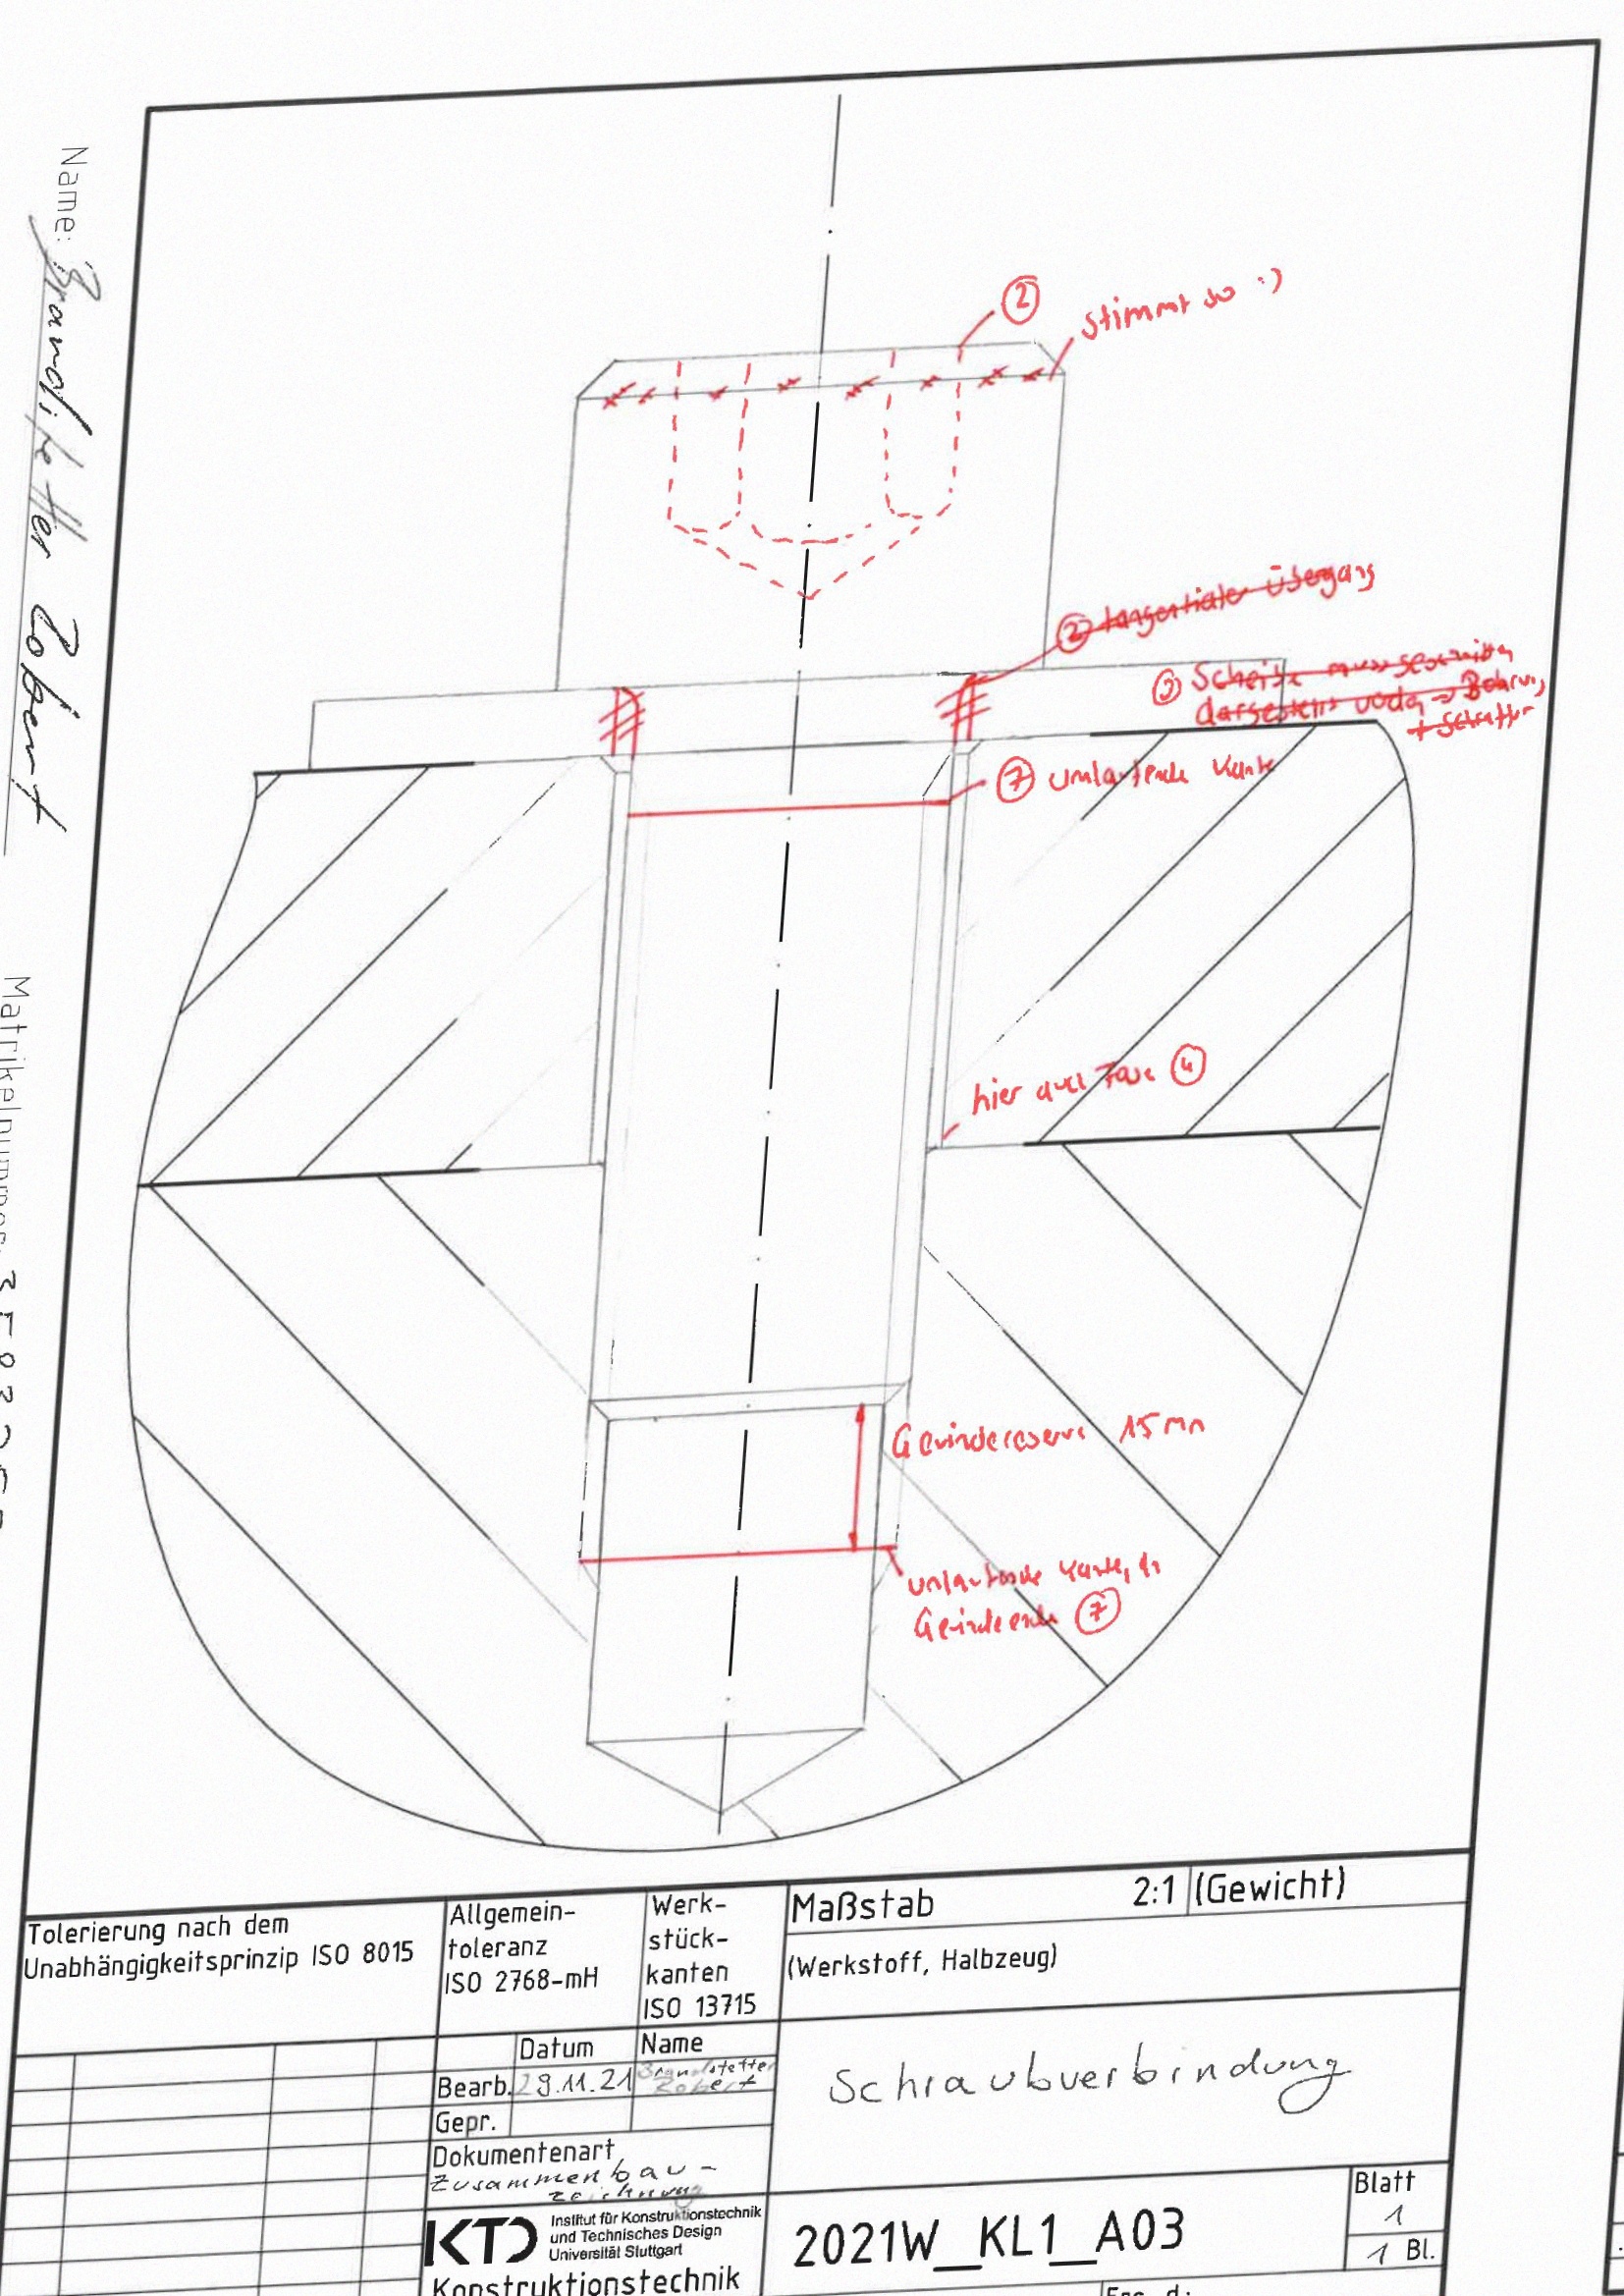 Name: Brandstetter Robert
Matrikelnummer:
②
stimmt so :)
② tangentialer Übergang
③ Scheibe muss geschnitten
dargestellt werden => Bohrung
+ Schraffur
⑦ umlaufende Kante
hier auch Fase ④
Gewindereserve 15mm
umlaufende Kante,
Gewindeende ⑦
Tolerierung nach dem
Unabhängigkeitsprinzip ISO 8015
Allgemein-
toleranz
ISO 2768-mH
Werk-
stück-
kanten
ISO 13715
Maßstab 2:1 (Gewicht)
(Werkstoff, Halbzeug)
Datum Name
Bearb. 29.11.21 Brandstetter
Robert
Gepr.
Schraubverbindung
Dokumentenart
Zusammenbau-
zeichnung
KTD Institut für Konstruktionstechnik
und Technisches Design
Universität Stuttgart
Konstruktionstechnik
2021W_KL1_A03
Blatt
1
1 Bl.